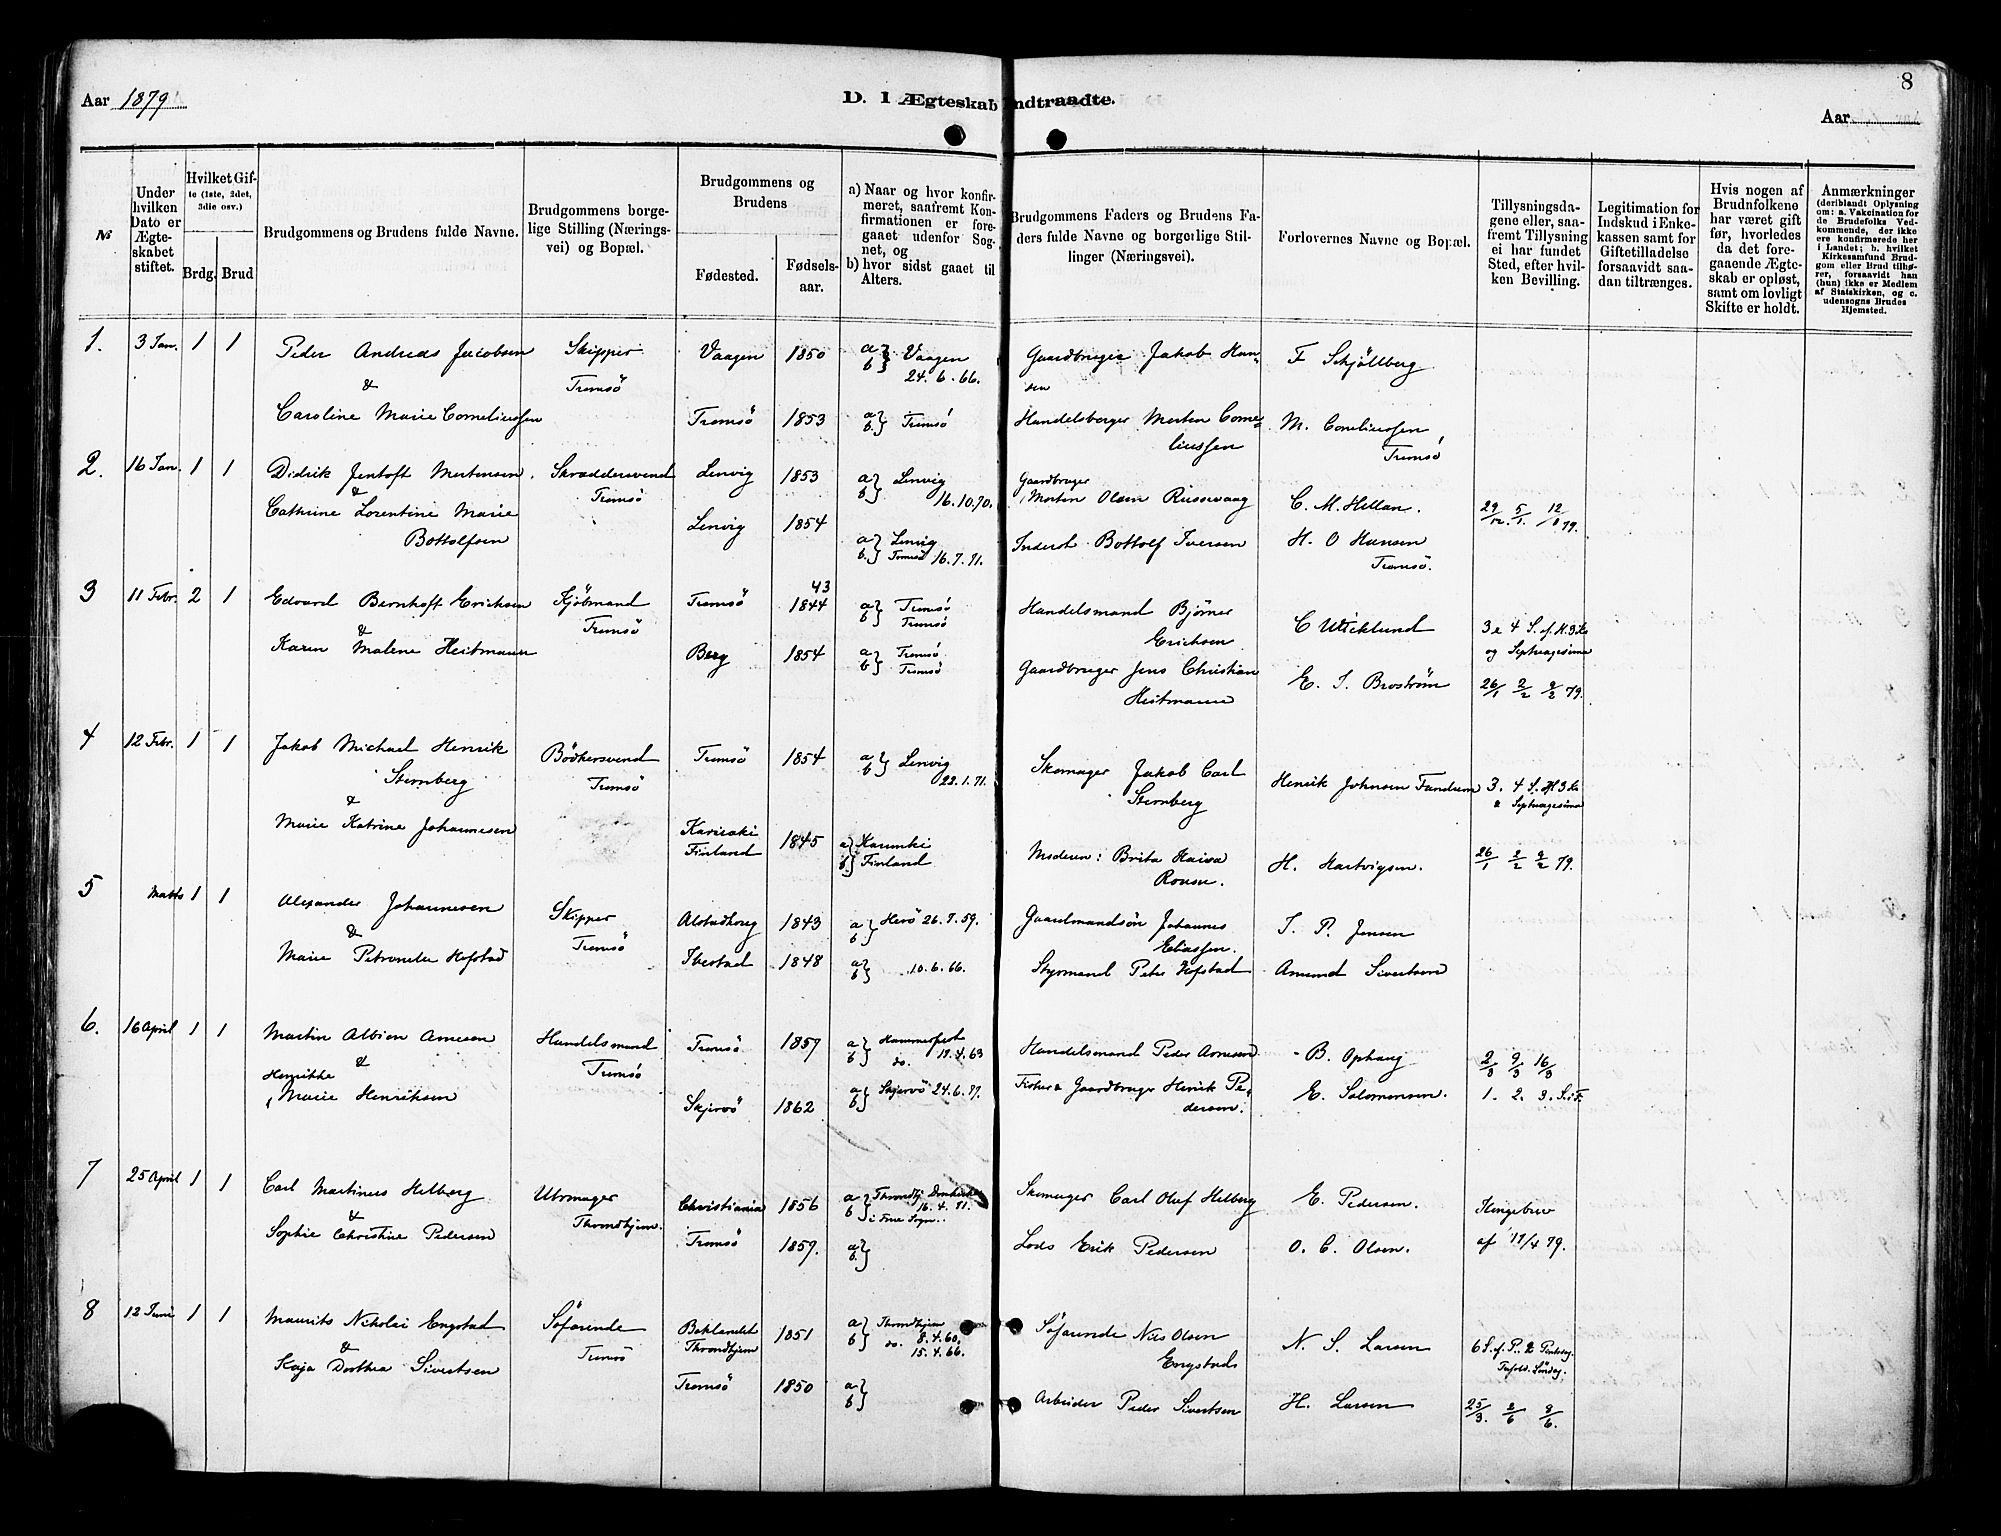 8
Aar 1879
D. I Ægteskab Indtraadte.
Aar
№
Under hvilken Dato er Ægteskabet stiftet.
Hvilket Gifte (1ste, 2det, 3die osv.)
Brdg. Brud
Brudgommens og Brudens fulde Navne.
Brudgommens borgelige Stilling (Næringsvei) og Bopæl.
Brudgommens og Brudens
Fødested.
Fødselsaar.
a) Naar og hvor konfirmeret, saafremt Konfirmationen er foregaaet udenfor Sognet, og
b) hvor sidst gaaet til Alters.
Brudgommens Faders og Brudens Faders fulde Navne og borgerlige Stillinger (Næringsvei).
Forlovernes Navne og Bopæl.
Tillysningsdagene eller, saafremt Tillysning ei har fundet Sted, efter hvilken Bevilling.
Legitimation for Indskud i Enkekassen samt for Giftetilladelse forsaavidt saadan tiltrænges.
Hvis nogen af Brudnfolkene har været gift før, hvorledes da det foregaaende Ægteskab er opløst, samt om lovligt Skifte er holdt.
Anmærkninger (deriblandt Oplysning om: a. Vakcination for de Brudefolks Vedkommende, der ikke ere konfirmerede her i Landet; b. hvilket Kirkesamfund Brudgom eller Brud tilhører, forsaavidt han (hun) ikke er Medlem af Statskirken, og c. udensogns Brudes Hjemsted.
1. 3 Jan. 1 1 Peder Andreas Jacobsen Skipper Vaagen 1850 a b } Vaagen Gaardbruger Jakob Hansen F Schjöllberg
& Tromsö 24. 6. 66.
Caroline Marie Corneliussen Tromsö 1853 a b } Tromsö Handelsborger Morten Corneliussen M. Corneliussen
Tromsö
2. 16 Jan. 1 1 Didrik Jentoft Mortensen Skræddersvend Lenvig 1853 a b } Lenvig 16.10.70. Gaardbruger Morten Olsen Russevaag C. M. Hellan. 29/12. 5/1. 12/1 79.
& Tromsö
Cathrine Lorentine Marie Bottolfsen Lenvig 1854 a b } Lenvig Tromsö 16.7.71. Inderst Bottolf Iversen H. O Hansen
Tromsö.
3 11 Febr. 2 1 Edvard Bernhoft Erichsen Kjöbmand Tromsö 43 1844 a b } Tromsö Tromsö Handelsmand Bjørner Erichsen C Wicklund 3 & 4 S. ef. H. 3 K
& Tromsö og Septuagesima
Karen Malene Heitmann Berg 1854 a b } Tromsö Tromsö Gaardbruger Jens Christian Heitmann E. I. Broström 26/1 2/2 9/2 79.
4 12 Febr. 1 1 Jakob Michael Henrik Sternberg Bödkersvend Tromsö 1854 a b } Lenvig 22.1.71. Skomager Jakob Carl Sternberg Henrik Johnsen 3. 4 S. H 3 K
& Tromsö & Septuagesima
Marie Katrine Johannesen Finland 1845 a b } Karunki Finland Moderen: Brita Kaisa H. Hartvigsen. 26/1 2/2 9/2 79.
5 Marts 1 1 Alexander Johannesen Skipper Alstadhoug 1843 a b } Herö 26.7.59. Gaardmandsön Johannes Eliassen. I. P. Jensen
& Tromsö
Marie Petronelle Hofstad Ibestad 1848 a b } 10.6.66. Styrmand Peter Hofstad Amund Sivertsen
6. 16 April 1 1 Martin Albion Arnesen Handelsmand Tromsö 1857 a b } Hammerfest do. Handelsmand Peder Arnesen B. Ophaug 2/3 9/3 16/3
Henrikke & Tromsö
Marie Henriksen Skjervö 1862 a b } Skjervö 24.6.77. Fisker & Gaardbruger Henrik Pedersen. E. Salomonsen. 1. 2. 3. S. i F.
7 25 April 1 1 Carl Martinus Helberg Uhrmager Christiania 1856 a b } Throndhj Domkirke 16.4.71. i Frue Sogn. Skomager Carl Oluf Helberg E. Pedersen. Kongebrev
& Throndhjem.
Sophie Christine Pedersen Tromsö 1857. a b } Lods Erik Pedersen O. C. Olsen. af 17/4 79.
8 12 Juni 1 1 Maurits Nikolai Engstad Söfarende Baklandet Throndhjem 1851 a b } Throndhjem do. 8.4.60. 15.4.66. Söfarende Nils Olsen Engstads N. S. Larsen 6 S. ef. P. & Pintsdag. Trefold. Söndag.
& Tromsö
Kaja Dorthea Sivertsen Tromsö 1850 a b } Arbeider Peder Sivertsen H. Larsen